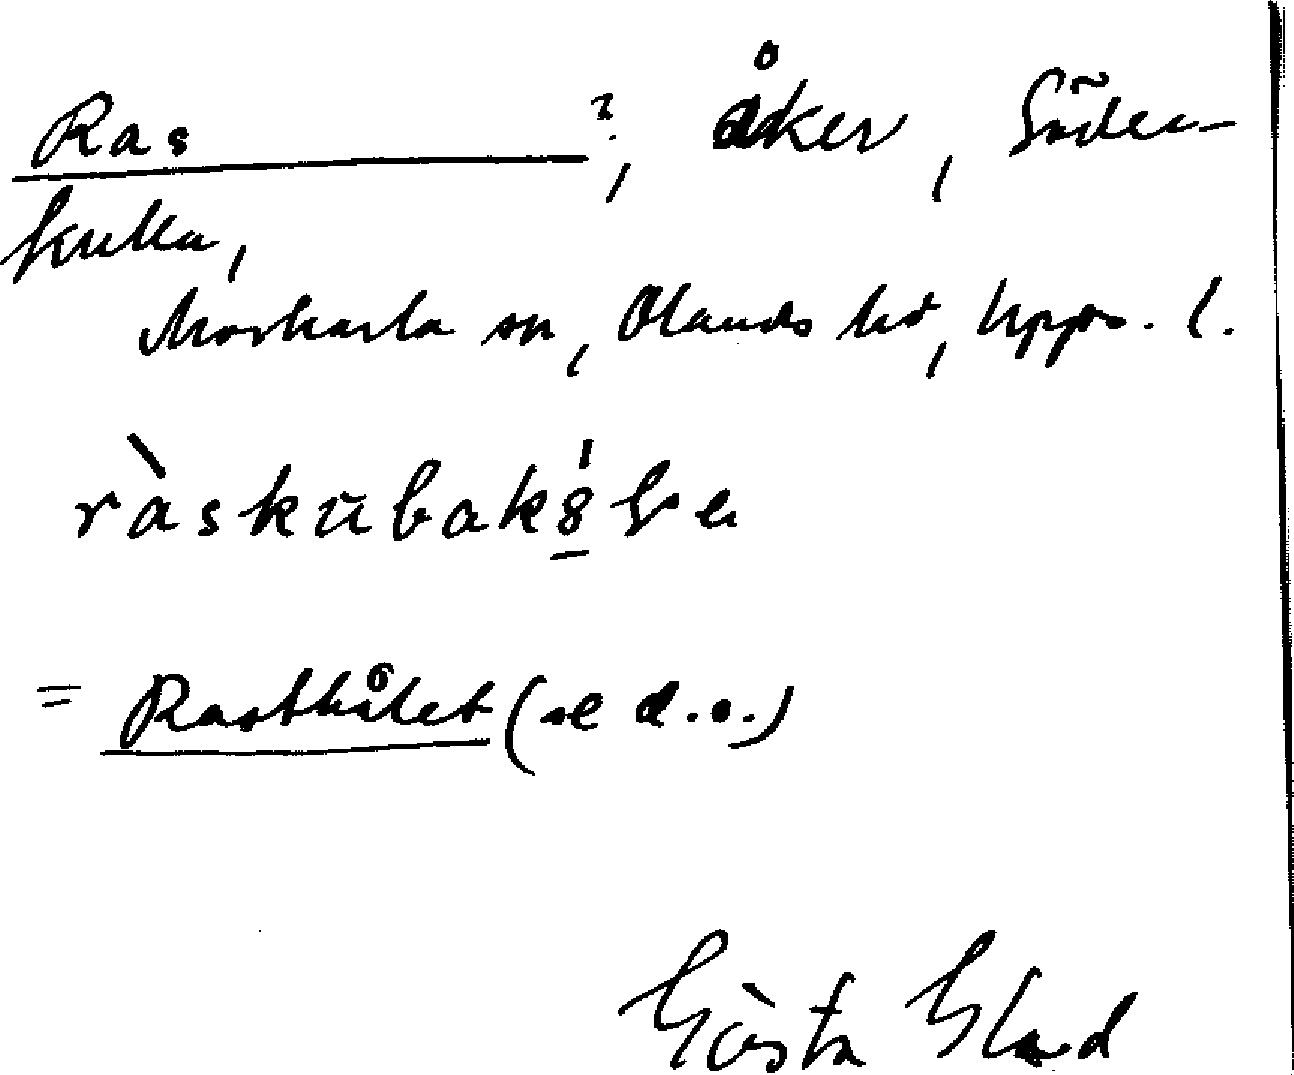 Ras ?, åker, Söder-
kulla,
Morkarla sn, Olands hd, Upps. l.
ràskūbak
= Rasthålet (se d.o.)
Gösta